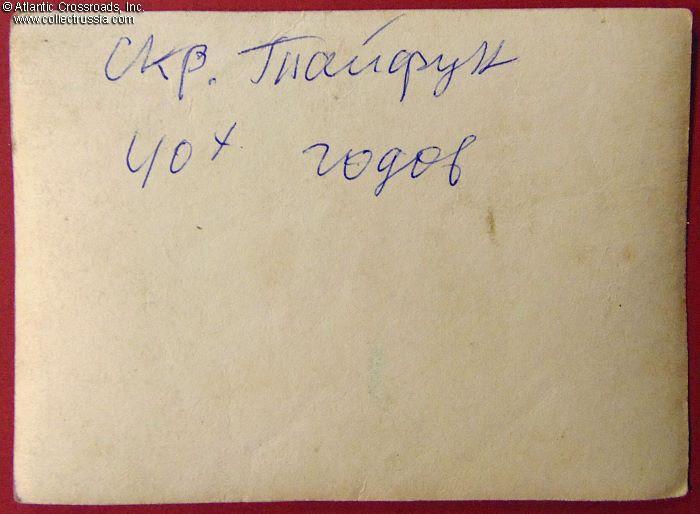 © Atlantic Crossroads, Inc.
www.collectrussia.com
СКР. Тайфун
40х годов